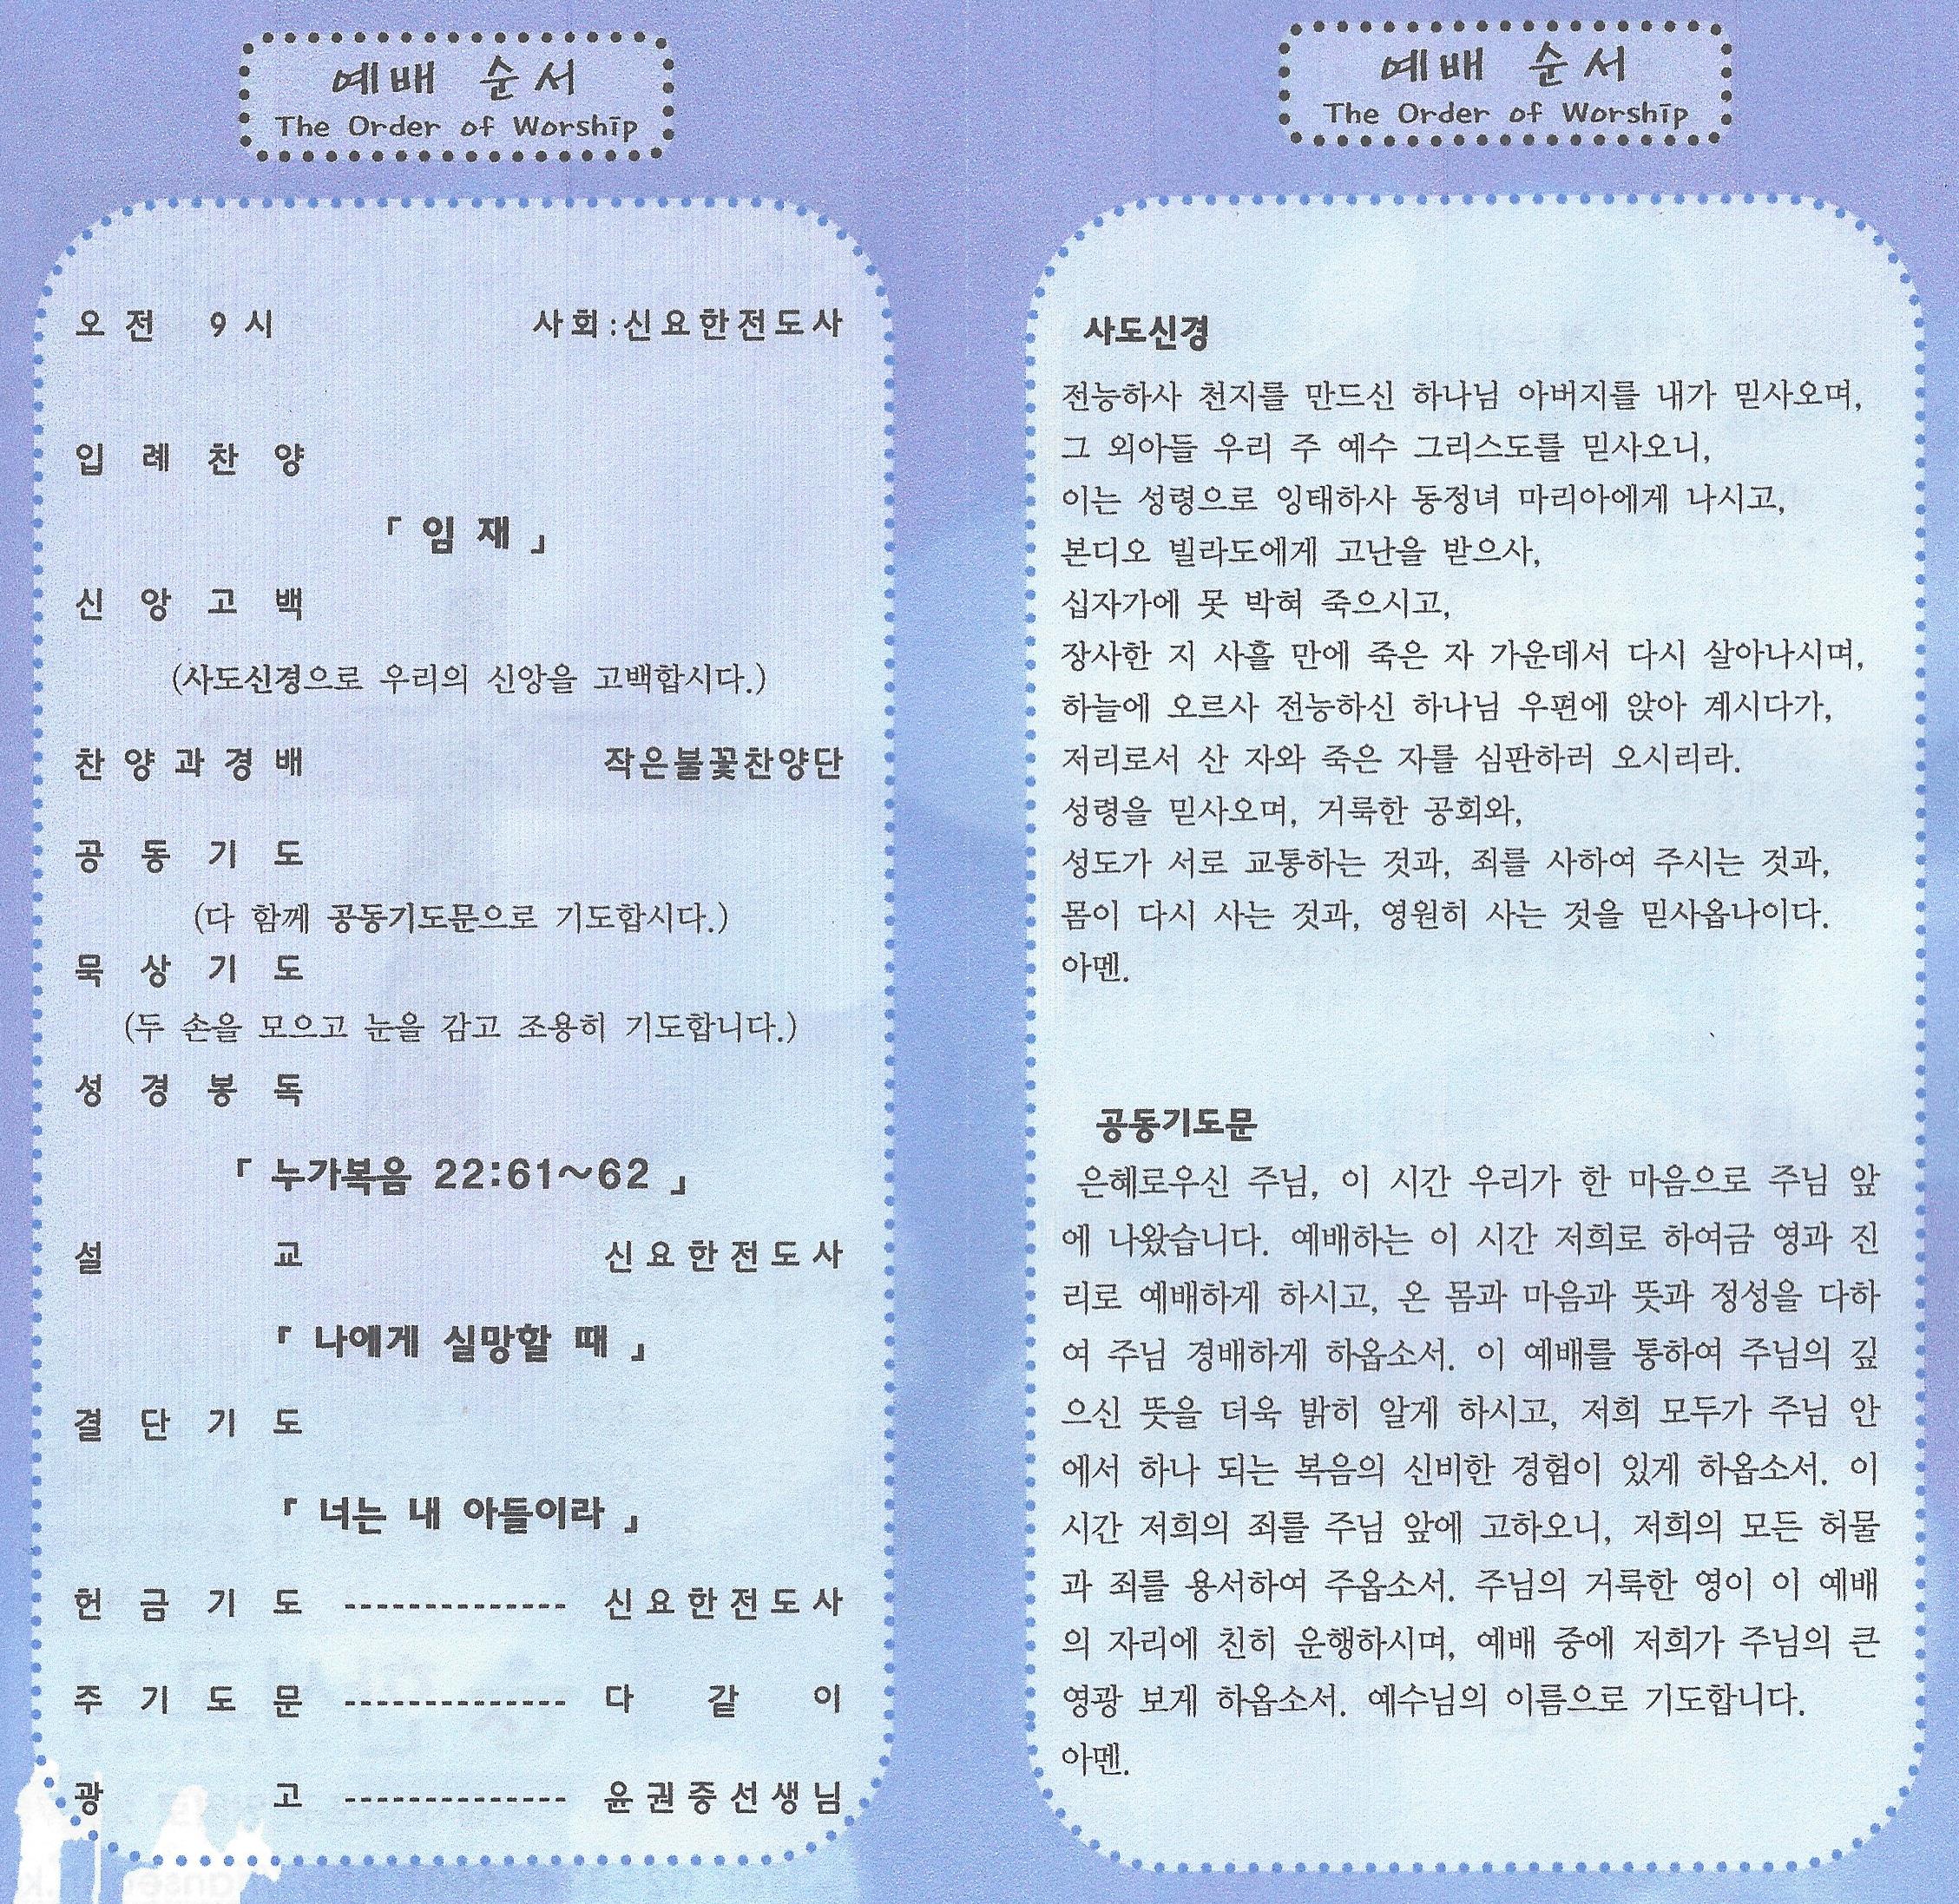 예배 순서
The Order of Worship
오전 9시 사회:신요한전도사
입례찬양
「임재」
신앙고백
(사도신경으로 우리의 신앙을 고백합시다.)
찬양과경배 작은불꽃찬양단
공동기도
(다 함께 공동기도문으로 기도합시다.)
묵상기도
(두 손을 모으고 눈을 감고 조용히 기도합니다.)
성경봉독
「누가복음 22:61~62」
설교 신요한전도사
「나에게 실망할 때」
결단기도
「너는 내 아들이라」
헌금기도 -------------- 신요한전도사
주기도문 -------------- 다같이
광고 -------------- 윤권중선생님
예배 순서
The Order of Worship
사도신경
전능하사 천지를 만드신 하나님 아버지를 내가 믿사오며,
그 외아들 우리 주 예수 그리스도를 믿사오니,
이는 성령으로 잉태하사 동정녀 마리아에게 나시고,
본디오 빌라도에게 고난을 받으사,
십자가에 못 박혀 죽으시고,
장사한 지 사흘 만에 죽은 자 가운데서 다시 살아나시며,
하늘에 오르사 전능하신 하나님 우편에 앉아 계시다가,
저리로서 산 자와 죽은 자를 심판하러 오시리라.
성령을 믿사오며, 거룩한 공회와,
성도가 서로 교통하는 것과, 죄를 사하여 주시는 것과,
몸이 다시 사는 것과, 영원히 사는 것을 믿사옵나이다.
아멘.
공동기도문
은혜로우신 주님, 이 시간 우리가 한 마음으로 주님 앞
에 나왔습니다. 예배하는 이 시간 저희로 하여금 영과 진
리로 예배하게 하시고, 온 몸과 마음과 뜻과 정성을 다하
여 주님 경배하게 하옵소서. 이 예배를 통하여 주님의 깊
으신 뜻을 더욱 밝히 알게 하시고, 저희 모두가 주님 안
에서 하나 되는 복음의 신비한 경험이 있게 하옵소서. 이
시간 저희의 죄를 주님 앞에 고하오니, 저희의 모든 허물
과 죄를 용서하여 주옵소서. 주님의 거룩한 영이 이 예배
의 자리에 친히 운행하시며, 예배 중에 저희가 주님의 큰
영광 보게 하옵소서. 예수님의 이름으로 기도합니다.
아멘.